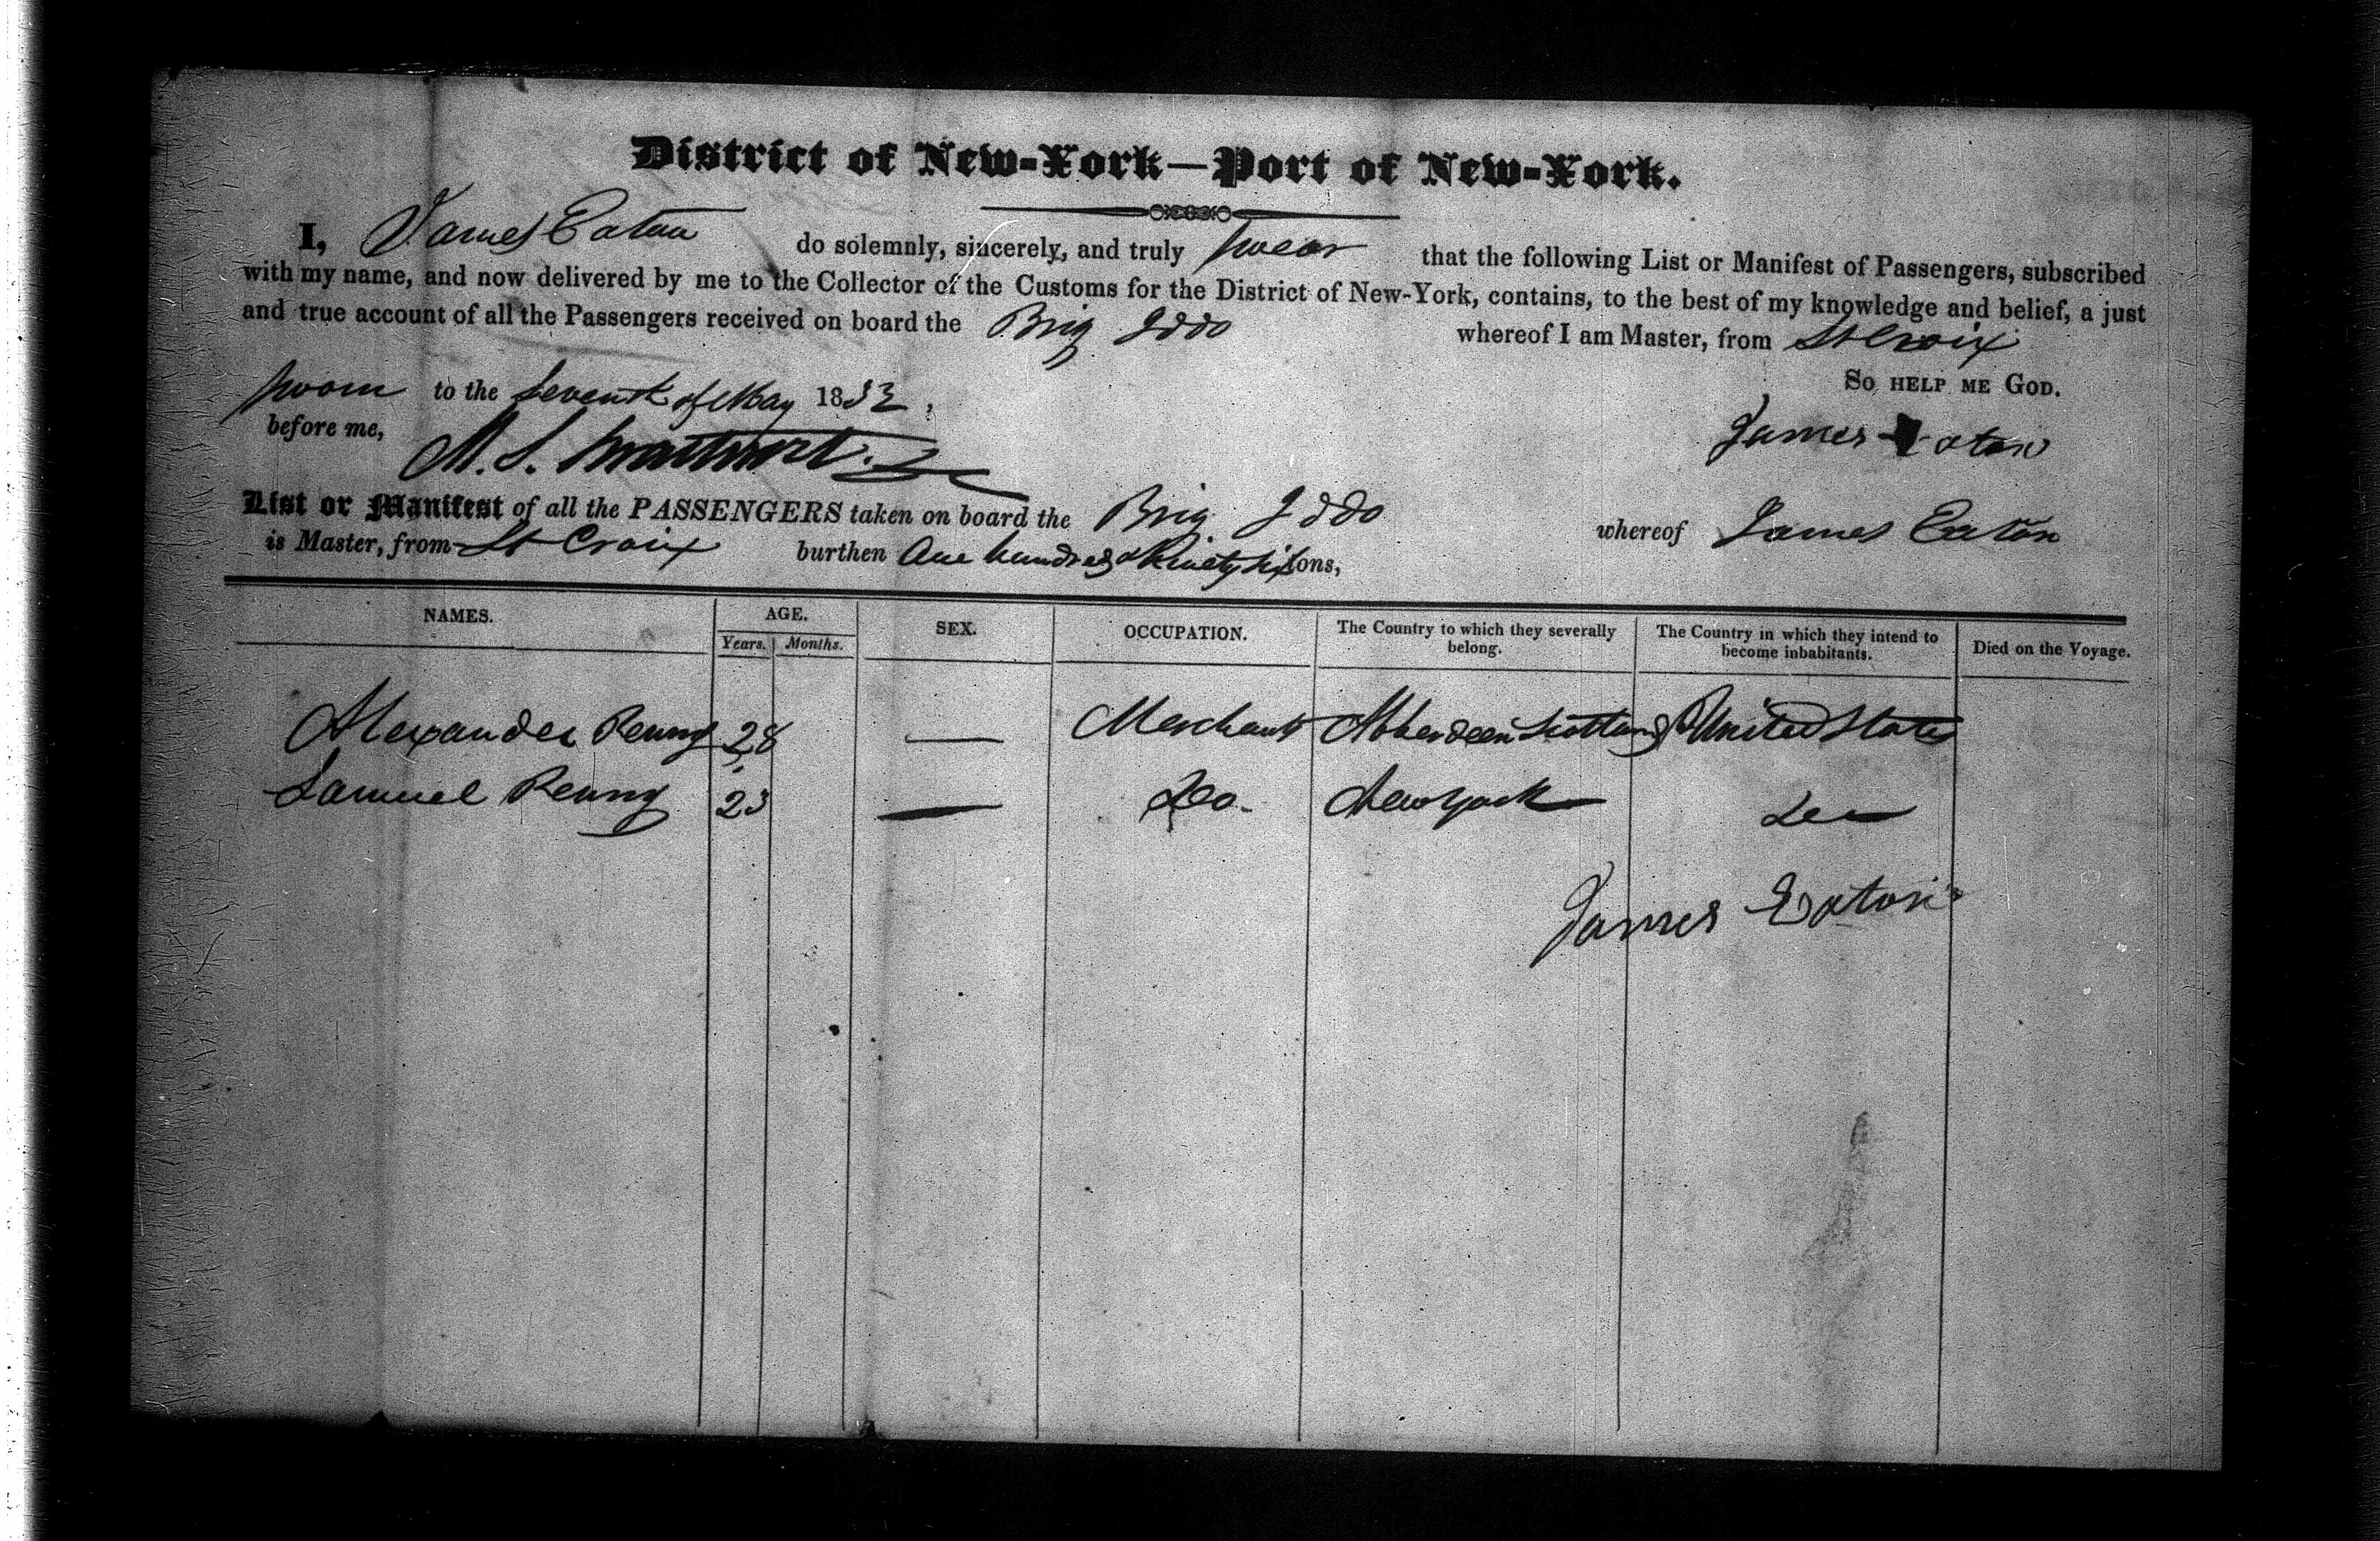 District of New-York—Port of New-York.
I, James Eaton do solemnly, sincerely, and truly swear that the following List or Manifest of Passengers, subscribed
with my name, and now delivered by me to the Collector of the Customs for the District of New-York, contains, to the best of my knowledge and belief, a just
and true account of all the Passengers received on board the Brig Iddo whereof I am Master, from St Croix
So help me God.
sworn to the Seventh of May 1832,
before me,
James Eaton
List or Manifest of all the PASSENGERS taken on board the Brig Iddo whereof James Eaton
is Master, from St Croix burthen One hundred & Ninety Six tons,
NAMES. AGE. Years. Months. SEX. OCCUPATION. The Country to which they severally belong. The Country in which they intend to become inhabitants. Died on the Voyage.
Alexander Penny 28 — Merchant Abberdeen Scotland United States
Samuel Penny 23 — Do. New York Do
James Eaton